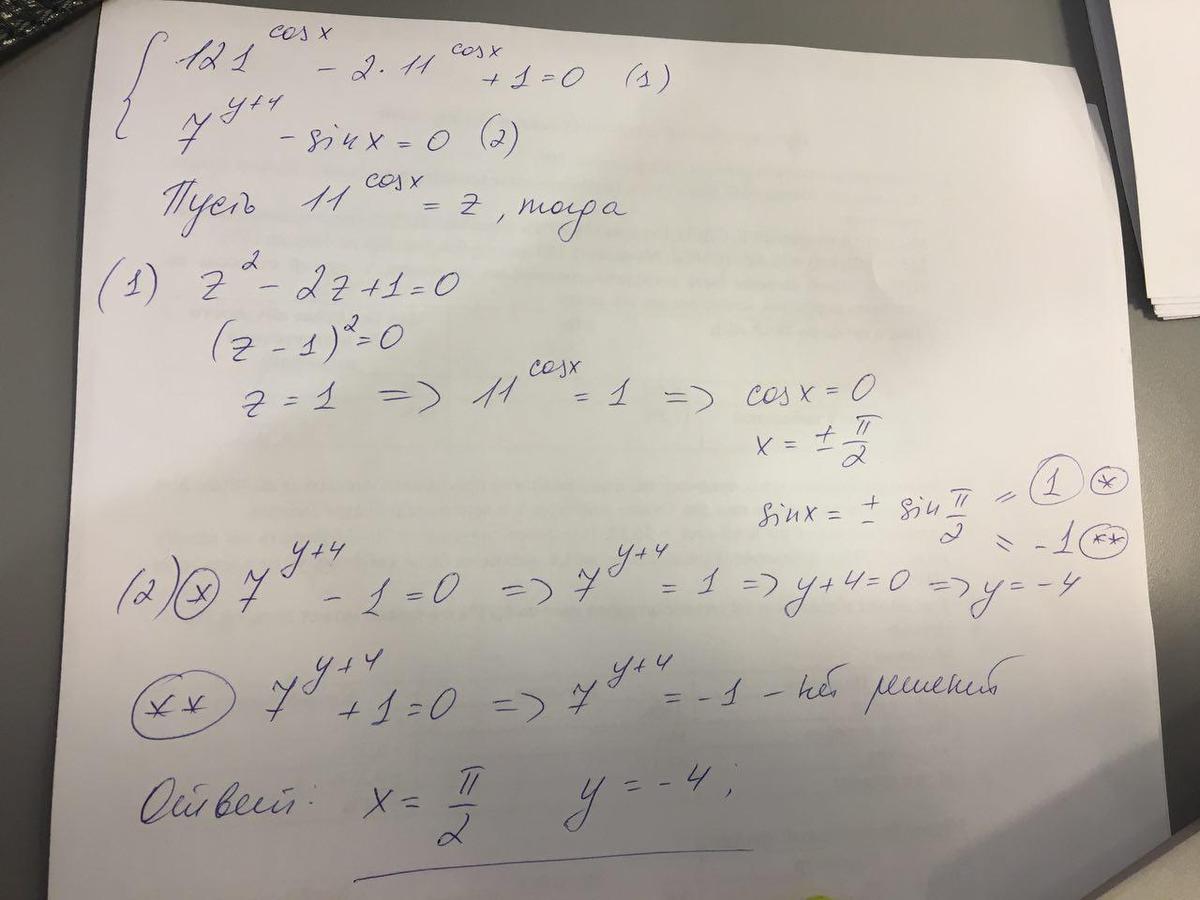 121^cosx - 2·11^cosx + 1 = 0 (1)
7^y+4 - sinx = 0 (2)
Пусть 11^cosx = z, тогда
(1) z² - 2z + 1 = 0
(z - 1)² = 0
z = 1 => 11^cosx = 1 => cosx = 0
x = ± π/2
sinx = ± sin π/2 = 1 *
= -1 **
(2) * 7^y+4 - 1 = 0 => 7^y+4 = 1 => y+4 = 0 => y = -4
** 7^y+4 + 1 = 0 => 7^y+4 = -1 - нет решений
Ответ: x = π/2 y = -4;